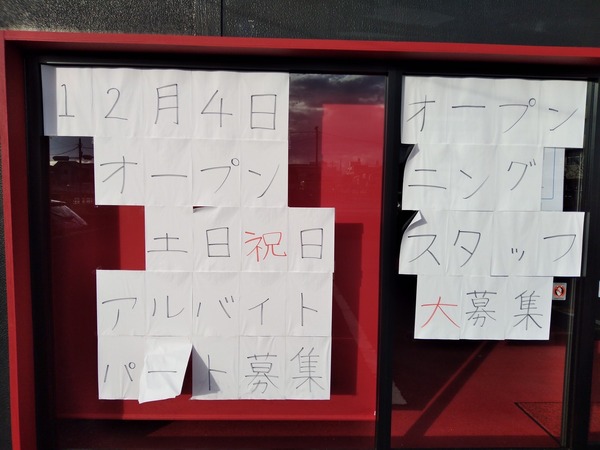 12月4日
オープン
土日祝日
アルバイト
パート募集
オープン
ニング
スタッフ
大募集